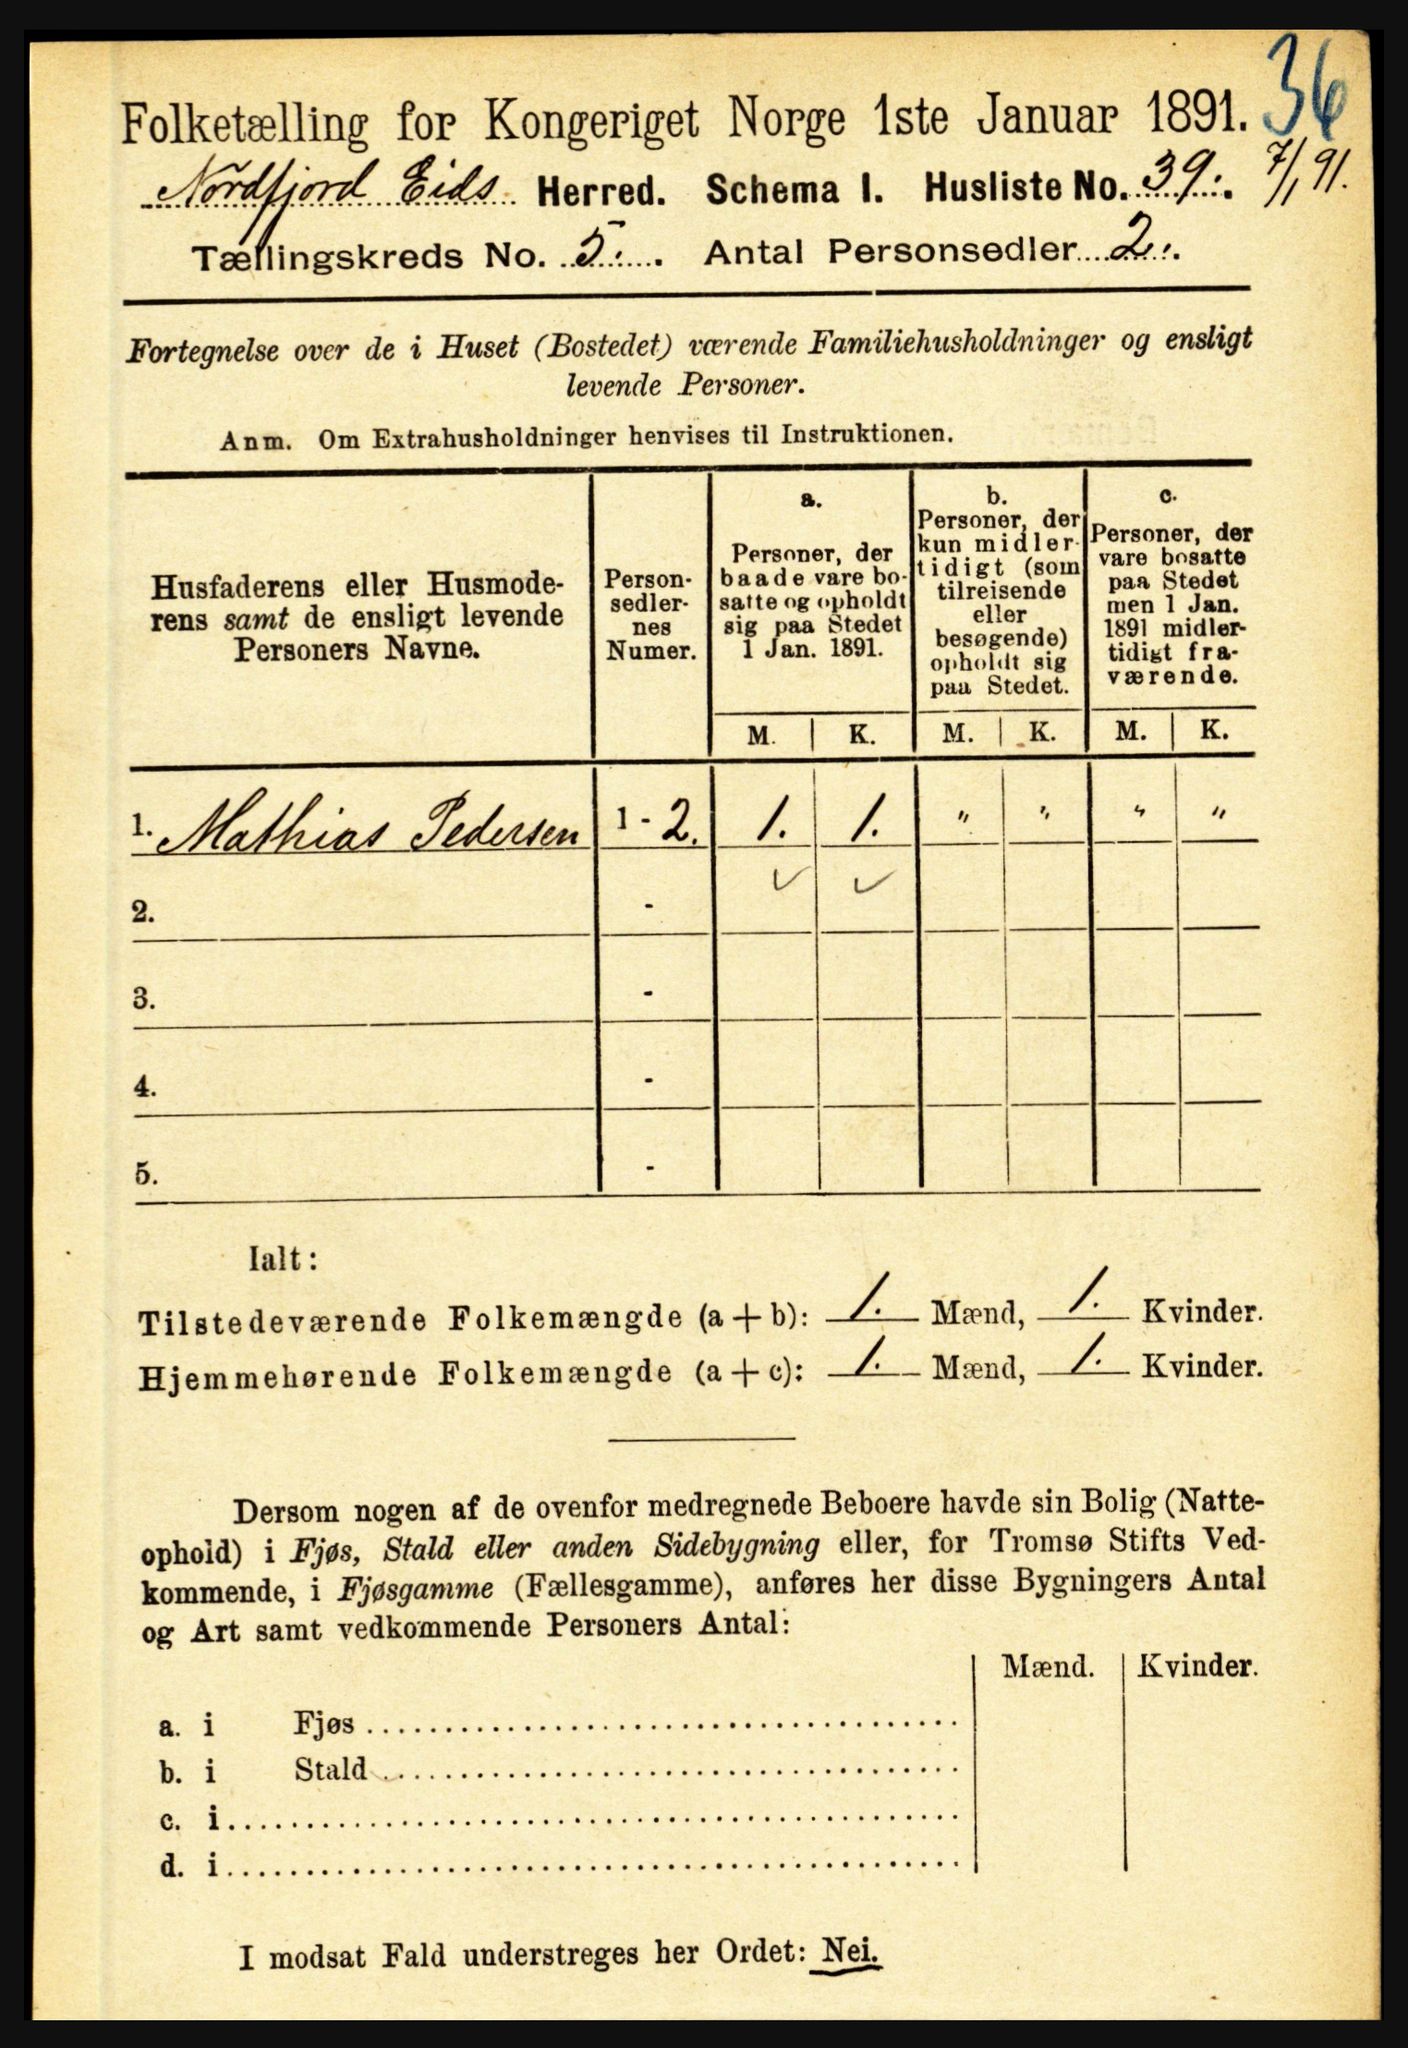 36
Folketælling for Kongeriget Norge 1ste Januar 1891.
Nordfjord Eids Herred. Schema I. Husliste No. 39. 7/1 91.
Tællingskreds No. 5. Antal Personsedler 2.
Fortegnelse over de i Huset (Bostedet) værende Familiehusholdninger og ensligt
levende Personer.
Anm. Om Extrahusholdninger henvises til Instruktionen.
Husfaderens eller Husmode-
rens samt de ensligt levende
Personers Navne.
Person-
sedler-
nes
Numer.
a.
Personer, der
baade vare bo-
satte og opholdt
sig paa Stedet
1 Jan. 1891.
b.
Personer, der
kun midler-
tidigt (som
tilreisende
eller
besøgende)
opholdt sig
paa Stedet.
c.
Personer, der
vare bosatte
paa Stedet
men 1 Jan.
1891 midler-
tidigt fra-
værende.
M. K. M. K. M. K.
1. Mathias Pedersen 1 - 2. 1. 1. " " " "
2. - ✓ ✓
3. -
4. -
5. -
Ialt:
Tilstedeværende Folkemængde (a + b): 1. Mænd, 1. Kvinder.
Hjemmehørende Folkemængde (a + c): 1. Mænd, 1. Kvinder.
Dersom nogen af de ovenfor medregnede Beboere havde sin Bolig (Natte-
ophold) i Fjøs, Stald eller anden Sidebygning eller, for Tromsø Stifts Ved-
kommende, i Fjøsgamme (Fællesgamme), anføres her disse Bygningers Antal
og Art samt vedkommende Personers Antal:
Mænd. Kvinder.
a. i Fjøs
b. i Stald
c. i
d. i
I modsat Fald understreges her Ordet: Nei.